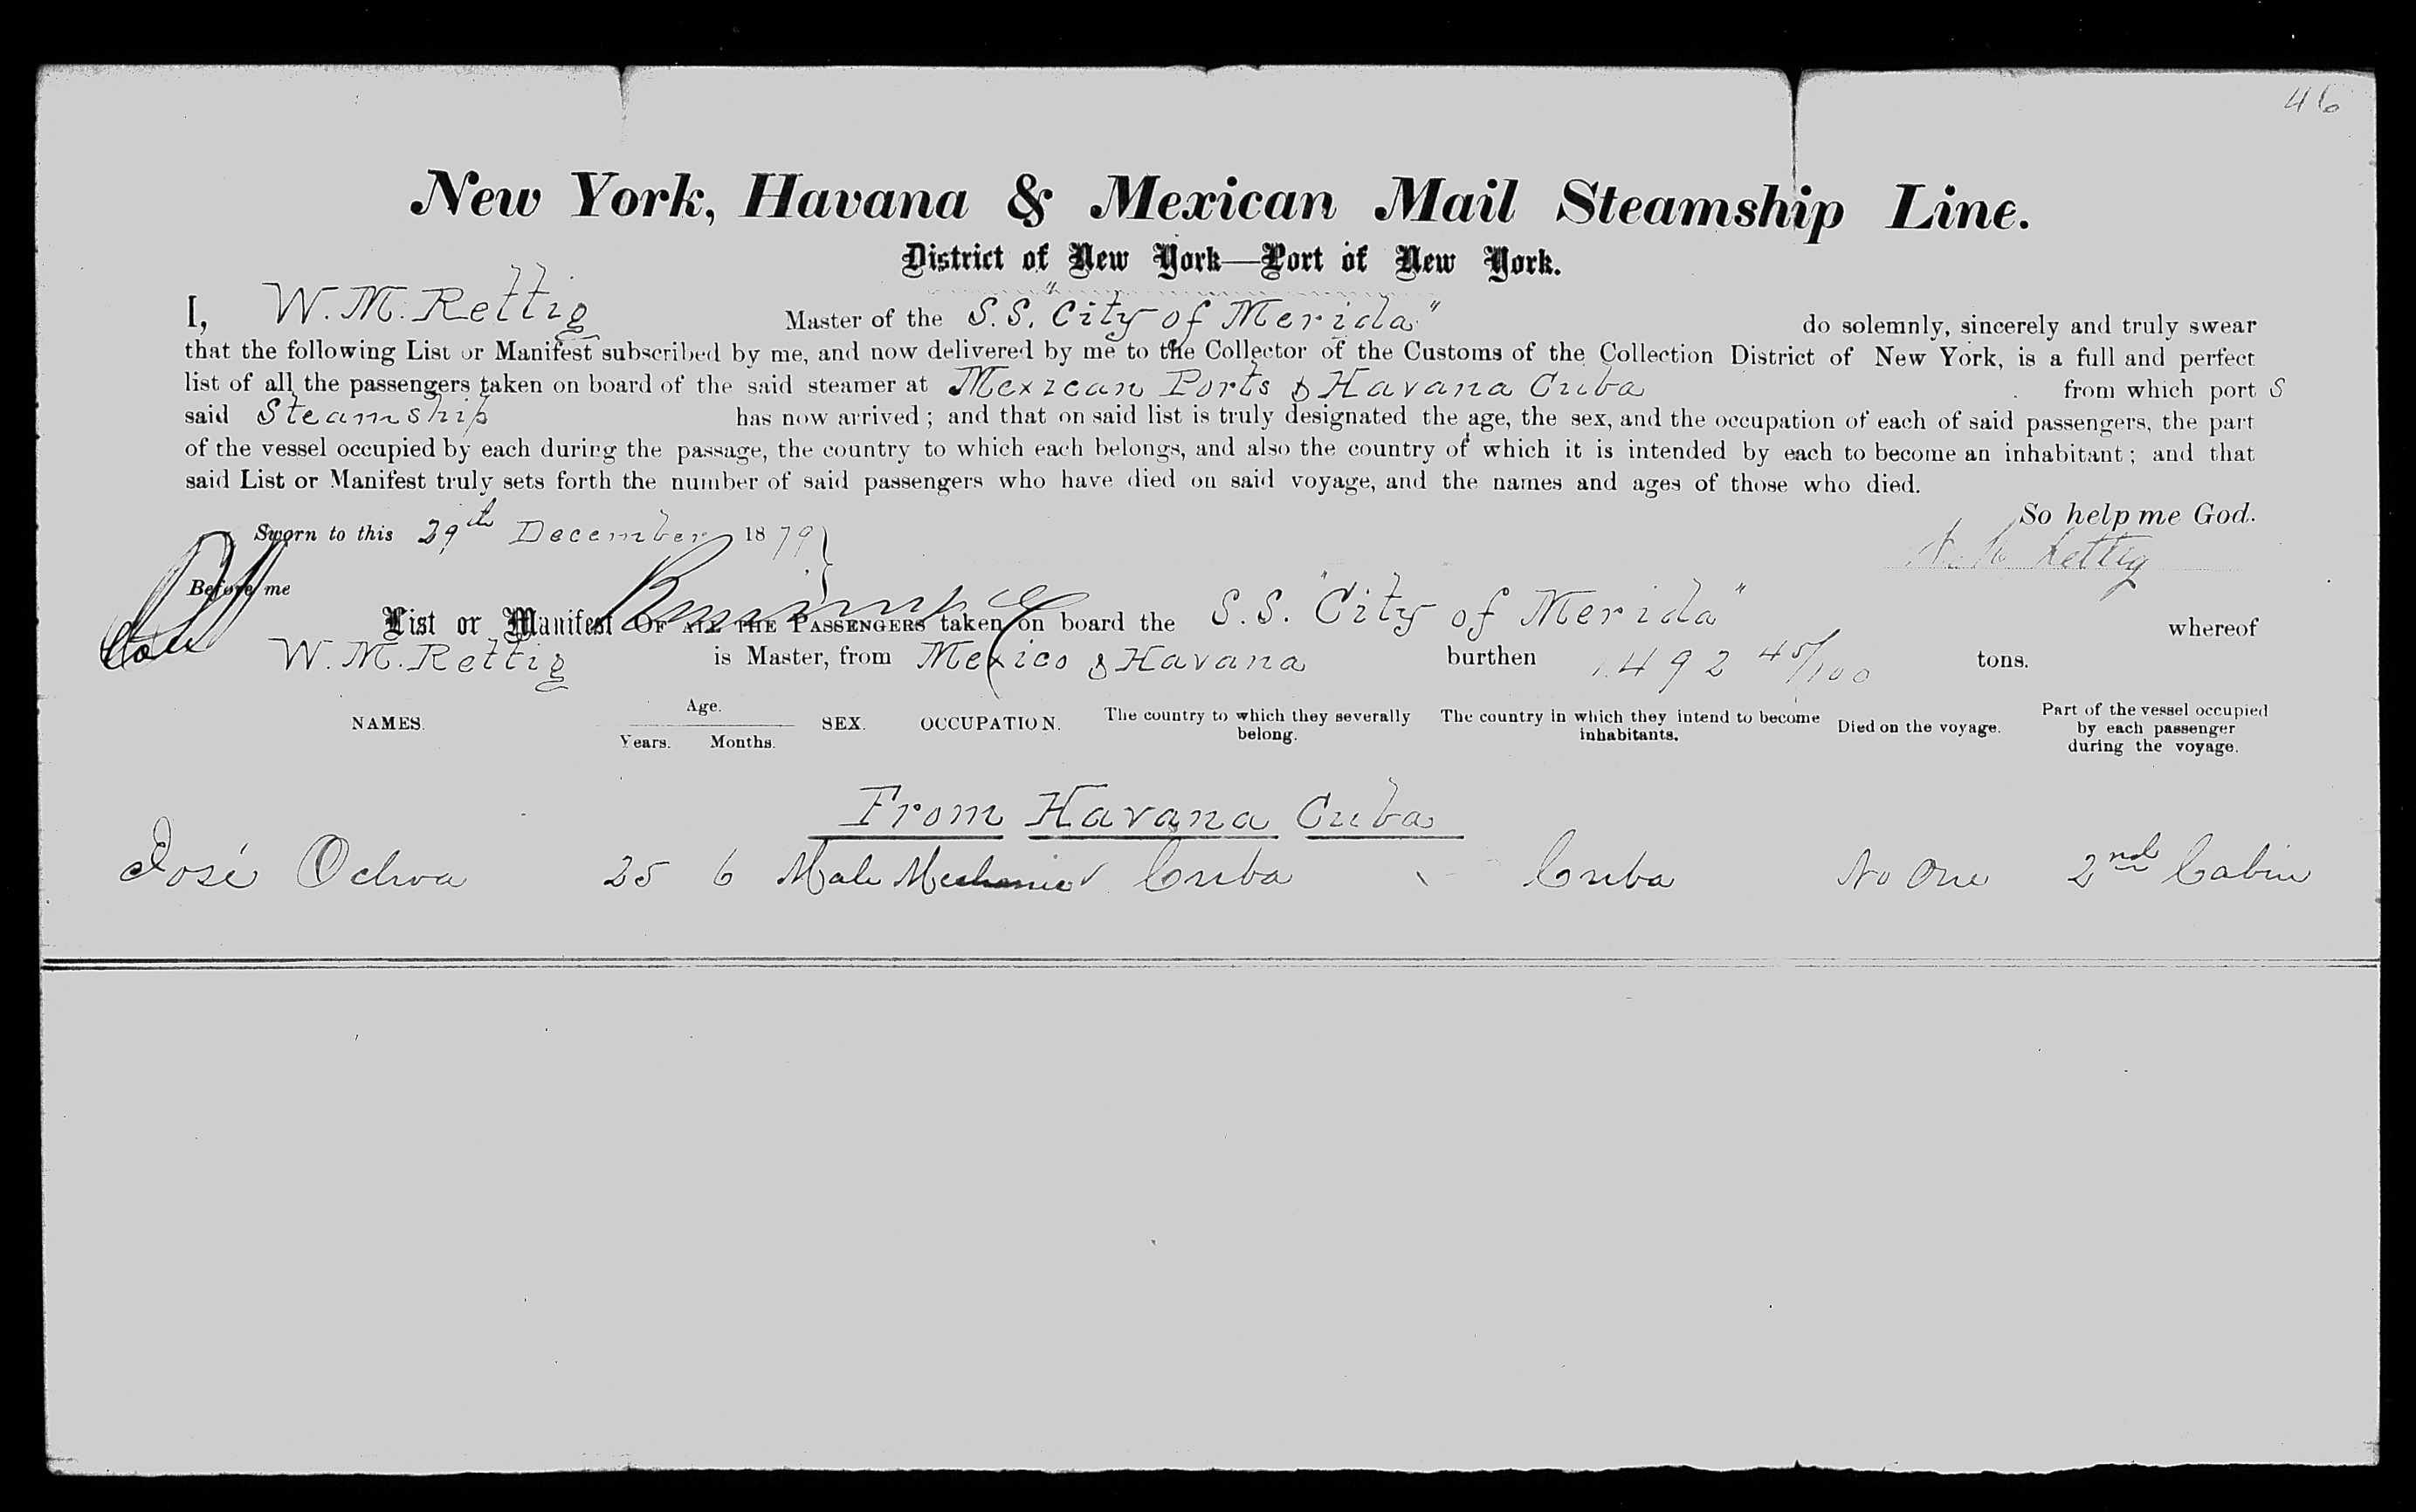 46
New York, Havana & Mexican Mail Steamship Line.
District of New York—Port of New York.
I, W. M. Rettig Master of the S.S. "City of Merida" do solemnly, sincerely and truly swear
that the following List or Manifest subscribed by me, and now delivered by me to the Collector of the Customs of the Collection District of New York, is a full and perfect
list of all the passengers taken on board of the said steamer at Mexican Ports & Havana Cuba from which port s
said Steamship has now arrived; and that on said list is truly designated the age, the sex, and the occupation of each of said passengers, the part
of the vessel occupied by each during the passage, the country to which each belongs, and also the country of which it is intended by each to become an inhabitant; and that
said List or Manifest truly sets forth the number of said passengers who have died on said voyage, and the names and ages of those who died.
So help me God.
Sworn to this 29th December 1879
W. M. Rettig
Before me
List or Manifest OF ALL THE PASSENGERS taken on board the S.S. "City of Merida" whereof
W. M. Rettig is Master, from Mexico & Havana burthen 1492 45/100 tons.
NAMES. Age. Years. Months. SEX. OCCUPATION. The country to which they severally belong. The country in which they intend to become inhabitants. Died on the voyage. Part of the vessel occupied by each passenger during the voyage.
From Havana Cuba
José Ochoa 25 6 Male Mechanic Cuba Cuba No One 2nd Cabin